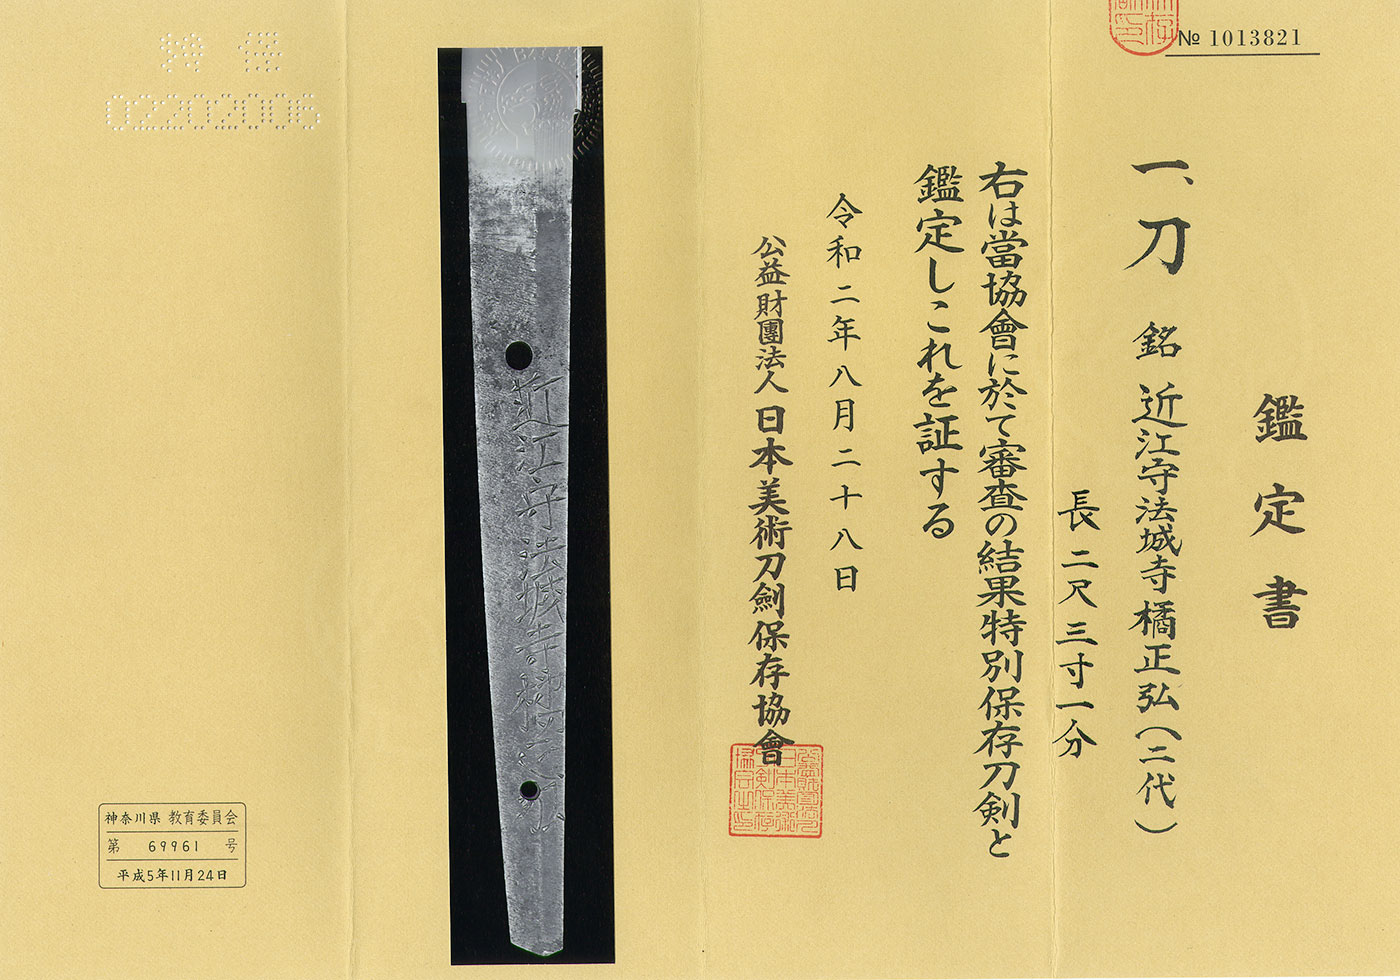 № 1013821
鑑定書
一、刀 銘 近江守法城寺橘正弘(二代)
長二尺三寸一分
右は當協會に於て審査の結果特別保存刀剣と
鑑定しこれを証する
令和二年八月二十八日
公益財團法人 日本美術刀劍保存協會
近江守法城寺橘正弘
02202006
神奈川県 教育委員会
第 69961 号
平成5年11月24日